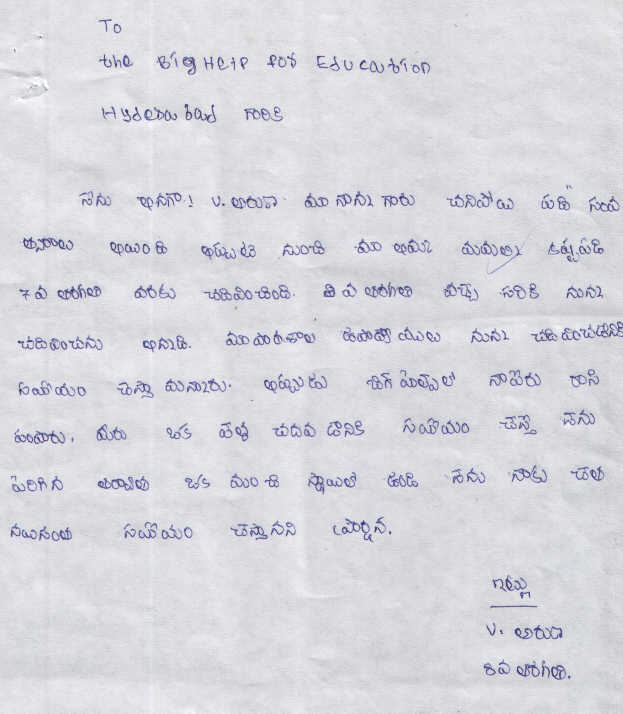 To
the Big Help for Education
Hyderabad గారికి
నేను అనగా! V. అరుణ మా నాన్న గారు చనిపోయి పది సంవ
త్సరాలు అయింది అప్పుటి నుంచి మా అమ్మ మమల్ని కష్టపడి
7 వ తరగతి వరకు చదివించింది. 8 వ తరగతి వచ్చే సరికి నున్న
చదివించను అన్నాది. మా పాఠశాల ఉపాధ్యాయులు నున్న చదివించడానికి
సహాయం చేస్తా మన్నారు. అప్పుడు బిగ్ హెల్ప్ లో నాపేరు రాసి
పంపారు. మీరు ఒక వేళ చదవ డానికి సహాయం చేస్తే నేను
పెరిగిన తరావాత ఒక మంచి స్థాయిలో ఉండి నేను నాకు చేత
నయినంత సహాయం చేస్తానని ప్రార్ధన.
ఇట్లు
V. అరుణ
8 వ తరగతి.